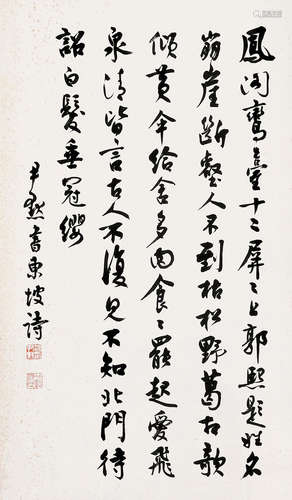 鳳閣鸞臺十二屏〻上郭熙題姓名
崩崖斷壑人不到枯松野葛相欹
傾黃散給舍多肉食〻罷起愛飛
泉清皆言古人不復見不知北門待
詔白髮垂冠纓
尹默書東坡詩